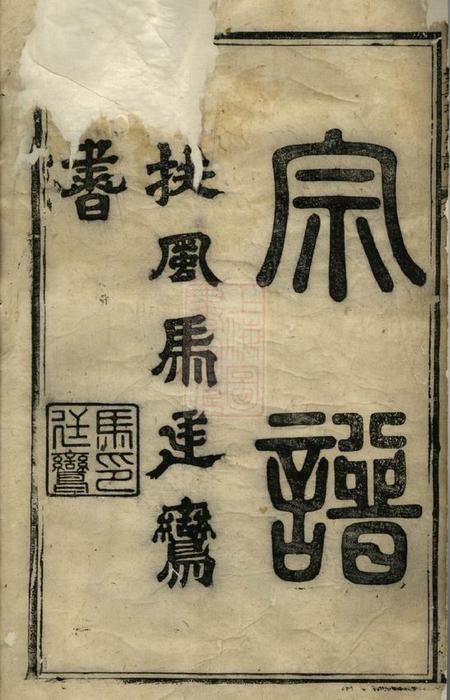 宗譜
扶風馬廷鸞
書
馬廷鸞印